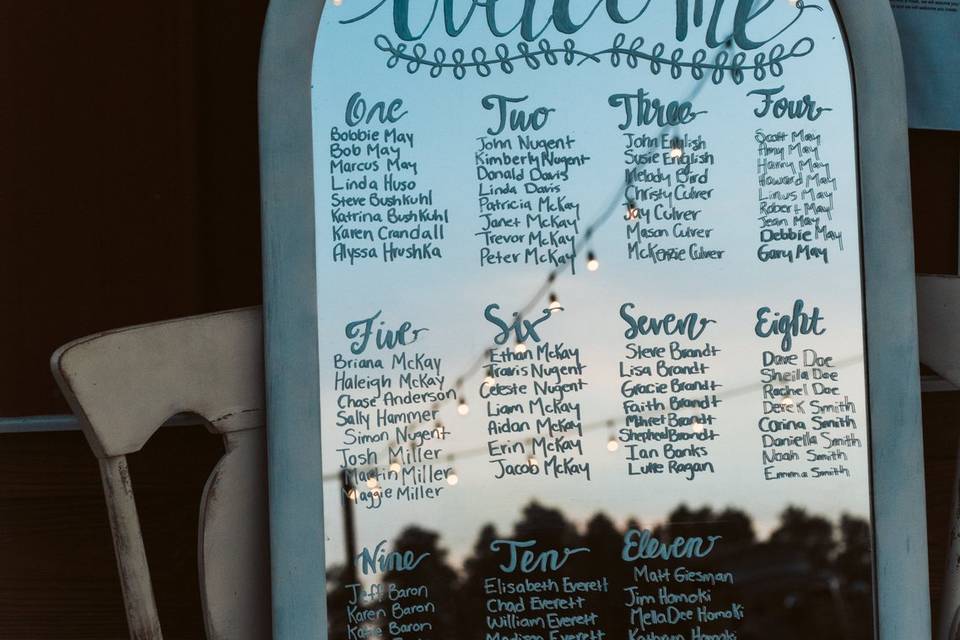 Welcome
One
Bobbie May
Bob May
Marcus May
Linda Huso
Steve Bushkuhl
Katrina Bushkuhl
Karen Crandall
Alyssa Hrushka
Two
John Nugent
Kimberly Nugent
Donald Davis
Linda Davis
Patricia McKay
Janet McKay
Trevor McKay
Peter McKay
Three
John English
Susie English
Melody Bird
Christy Culver
Jay Culver
Mason Culver
McKenzie Culver
Four
Scott May
Amy May
Harry May
Howard May
Linus May
Robert May
Jean May
Debbie May
Gary May
Five
Briana McKay
Haleigh McKay
Chase Anderson
Sally Hammer
Simon Nugent
Josh Miller
Martin Miller
Maggie Miller
Six
Ethan McKay
Travis Nugent
Celeste Nugent
Liam McKay
Aidan McKay
Erin McKay
Jacob McKay
Seven
Steve Brandt
Lisa Brandt
Gracie Brandt
Faith Brandt
Brandt
Shepherd Brandt
Ian Banks
Luke Ragan
Eight
Dave Doe
Sheila Doe
Rachel Doe
Derek Smith
Carina Smith
Daniella Smith
Noah Smith
Emma Smith
Nine
Jeff Baron
Karen Baron
Katie Baron
Ten
Elisabeth Everett
Chad Everett
William Everett
Madison Everett
Eleven
Matt Giesman
Jim Homoki
MellaDee Homoki
Kathryn Homoki